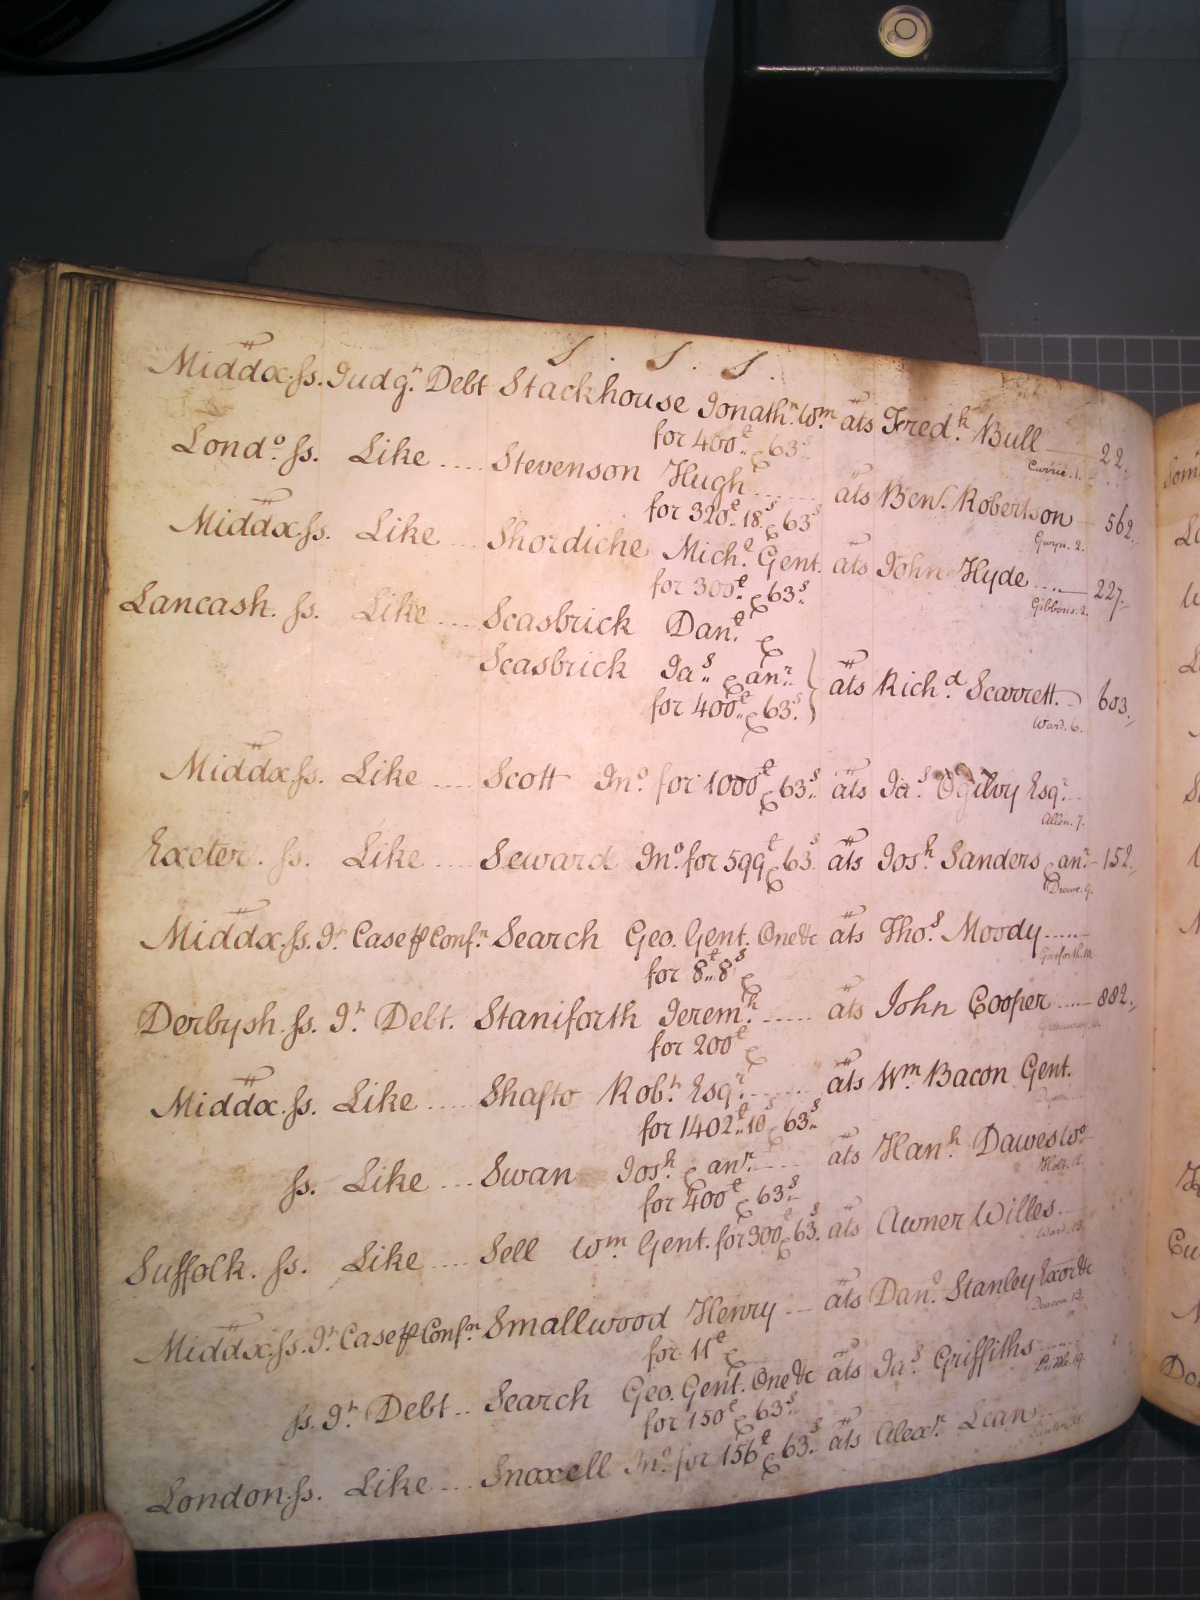 S. S. S.
Middx. ss. Judgt. Debt Stackhouse Jonathn. Wm. ats Fredk. Bull 22.
for 400£ & 63s Currie. 1.
Londo. ss. Like .... Stevenson Hugh ...... ats Ben. Robertson 562.
for 320£.. 18s & 63s Gwyn. 2.
Middx. ss. Like .... Shordiche Michl. Gent. ats John Hyde ..... 227.
for 300£ & 63s Gibbons. 2.
Lancash. ss. Like .... Scasbrick Danl. &
Scasbrick Jas. & anr. ats Richd. Scarrett. 603.
for 400£ & 63s. Ward. 6.
Middx. ss. Like .... Scott Jno. for 1000£ & 63s ats Jas. Ogilvy Esqr.
Allen. 7.
Exeter. ss. Like .... Seward Jno. for 599£ & 63s ats Josh. Sanders & anr. 152.
Drewe. 9.
Middx. ss. Jt. Case p Confn. Search Geo. Gent. One &c ats Thos. Moody .....
for 8£.. 8s & Gosforth. 10.
Derbysh. ss. Jt. Debt. Staniforth Jeremh. ..... ats John Cooper .... 882.
for 200£ &
Middx. ss. Like .... Shafto Robt. Esqr. ...... ats Wm. Bacon Gent.
for 1402£.. 10s & 63s
ss. Like .... Swan Josh. & anr. .... ats Hanh. Dawes Wo.
for 400£ & 63s Holt.
Suffolk. ss. Like .... Sell Wm. Gent. for 300£ & 63s. ats Awner Willes ..
Ward. 13.
Middx. ss. Jt. Case p Confn. Smallwood Henry ... ats Danl. Stanley Exor &c
for 11£ & Deacon. 13.
ss. Jt. Debt .. Search Geo. Gent. One &c ats Jas. Griffiths .....
for 150£ & 63s
London. ss. Like .... Snoxell Jno. for 156£ & 63s ats Alexr. Lean